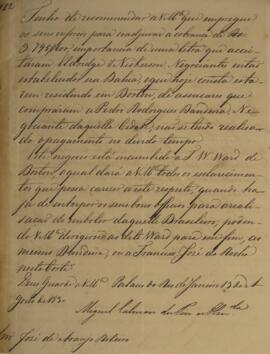 Tenho de recommendar a V.Mce. que empregue
os seus esforços para coadjuvar a cobrança de Rs.
3.795$000, importancia de uma letra que accei-
taram Aldridge & Nickerson, Negociantes então
estabelecidos na Bahia, e que hoje consta esta-
rem residindo em Boston, de assucares que
compraram a Pedro Rodrigues Bandeira, Ne-
gociante daquella Cidade, não se tendo realisa-
do o pagamento no devido tempo.
negocio está incumbido a T. W. Ward de
Boston, o qual dará a V.Mce. todos os esclarecimen-
tos que possa carecer a este respeito, quando ha-
ja de interpor os seus bons officios para a reali-
sação do embolso daquelle Brasileiro, poden-
do V.Mce. dirigir-se ao dito Ward para em fim, ao
mesmo Bandeira, ou a Francisco José da Rocha
nesta Corte.
Deos Guarde a V.Mce. Palacio do Rio de Janeiro 13 de A-
gosto de 183
Miguel Calmon du Pin e Almda
Snr. José de Araujo Ribeiro